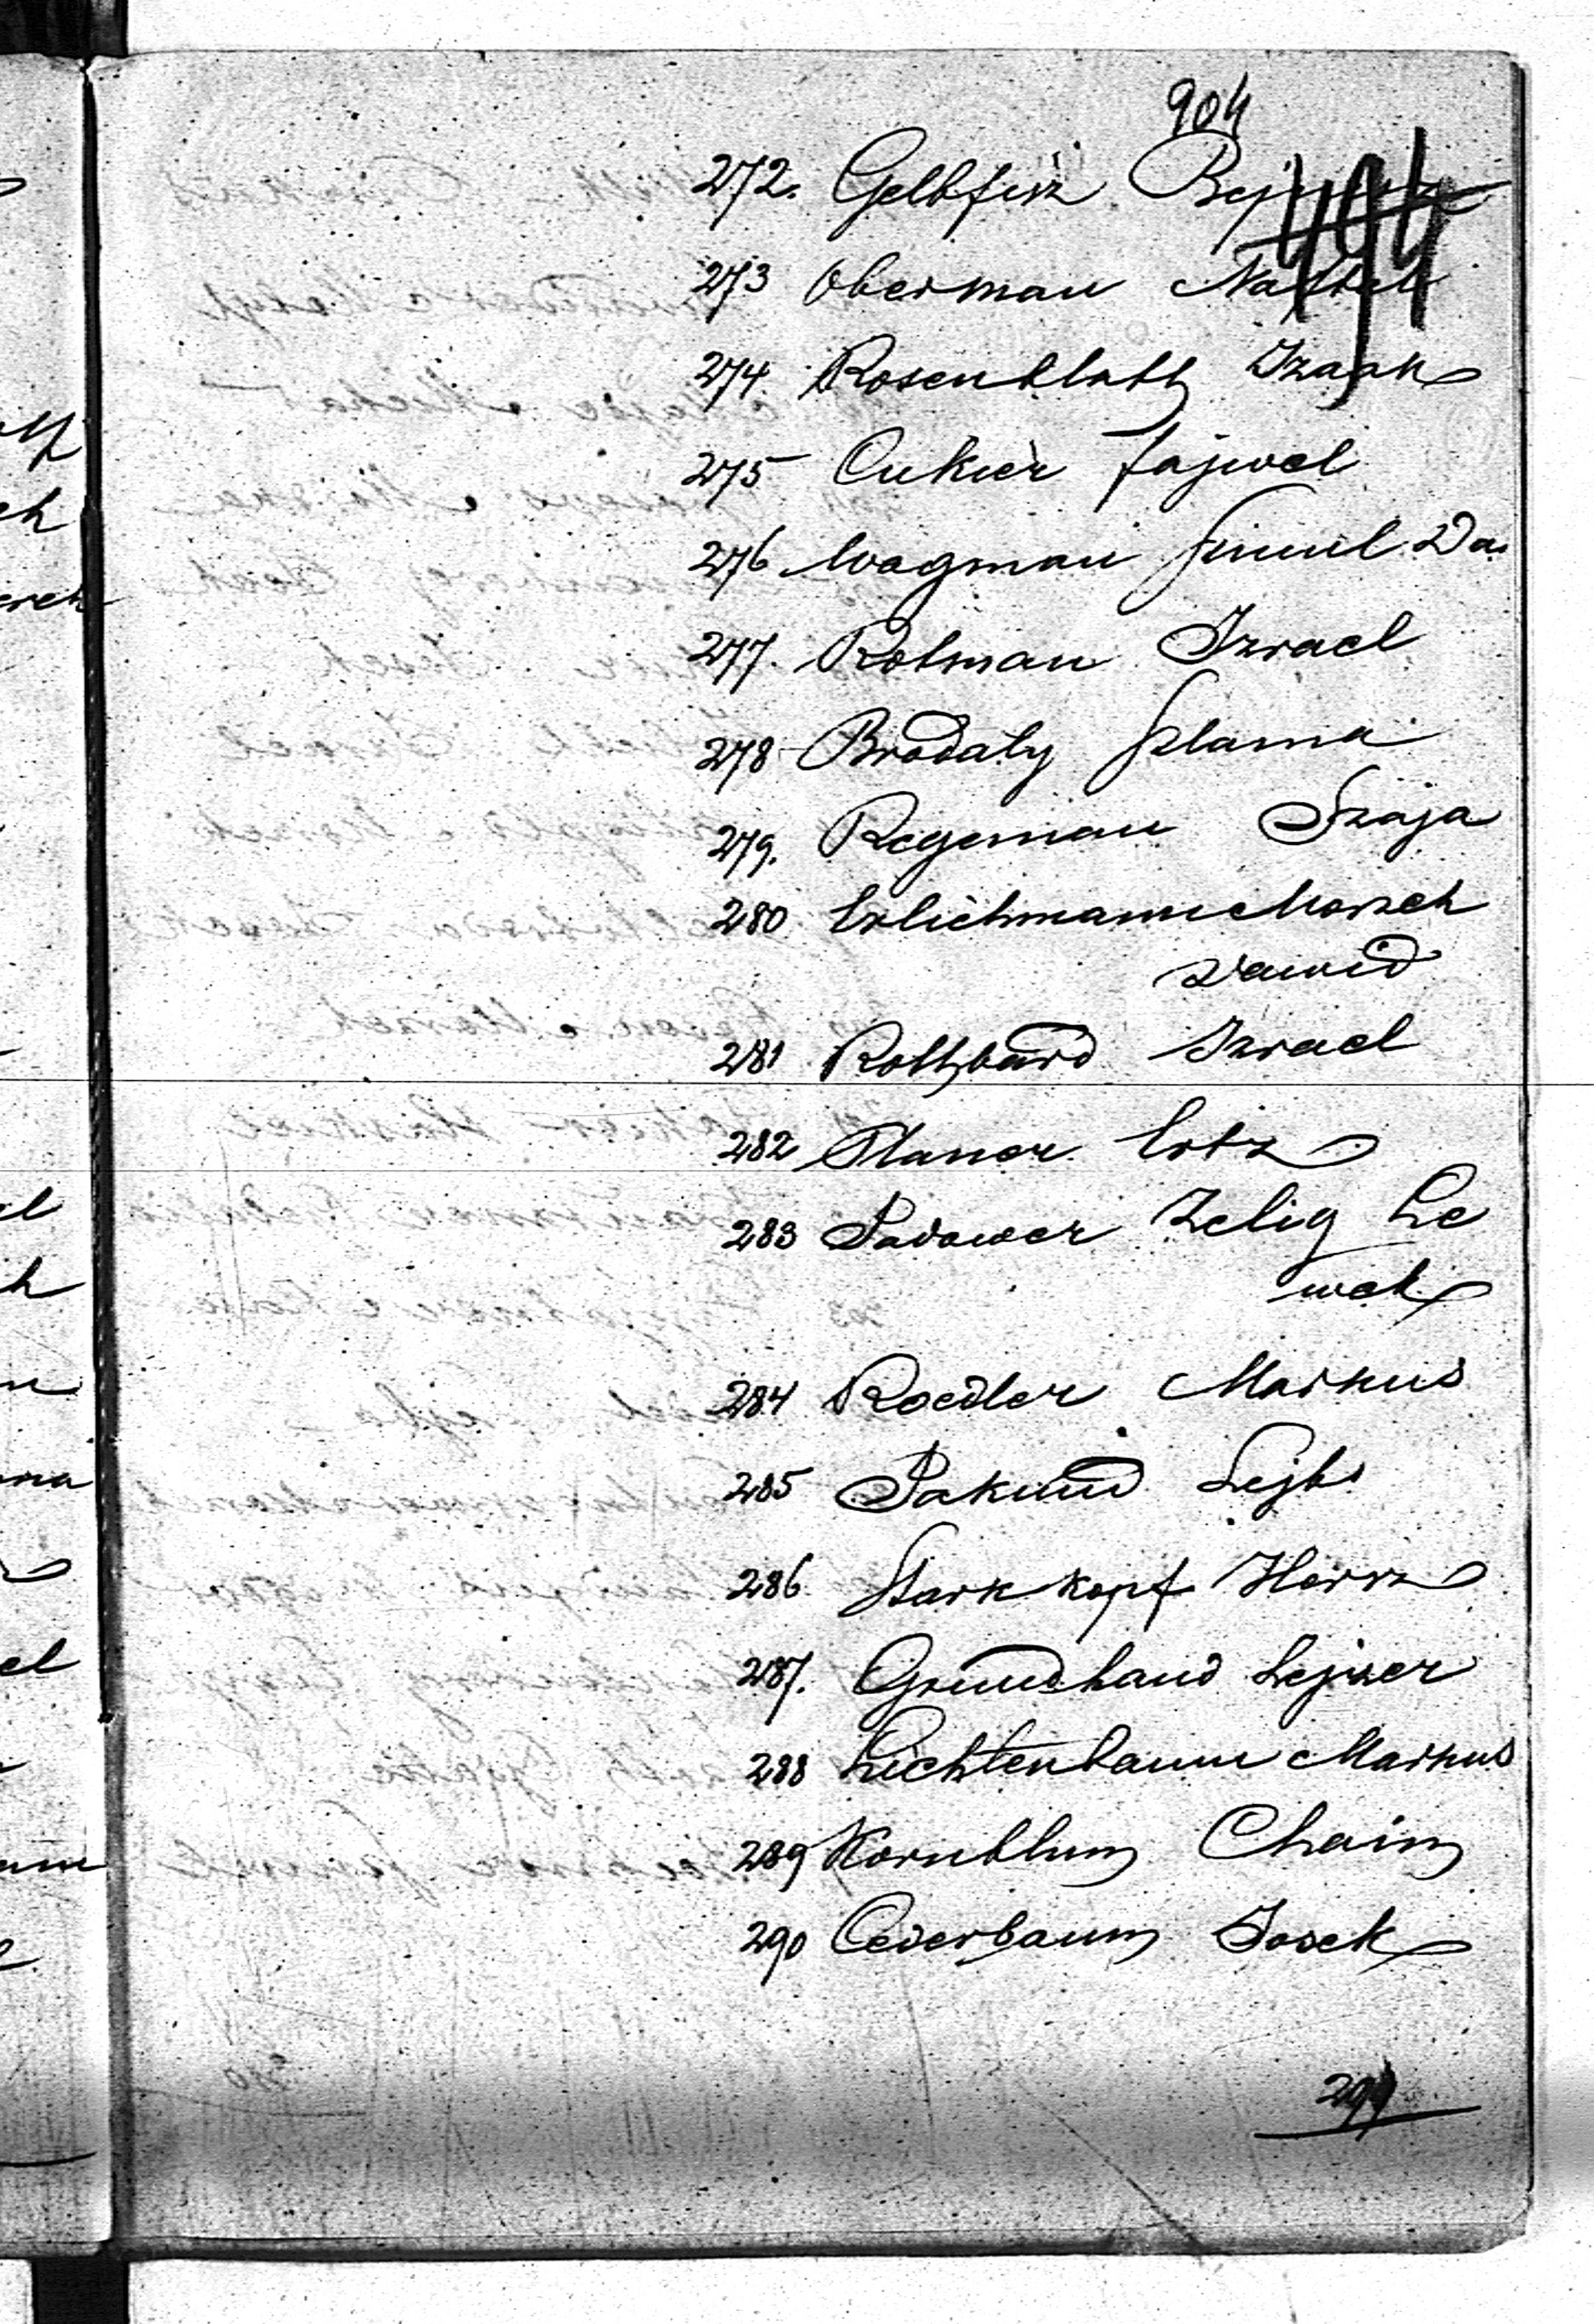 904
494
272. Gelbfisz
273 Oberman
274 Rosenblatt Izaak
275 Cukier Fajwel
276 Wagman Szmul Da
277. Rotman Izrael
278 Brodaty Szlama
279. Regeman Szaja
280 Erlichmann Morsek
Dawid
281 Rothbard Izrael
282 Planer
283 Padower Zelig Le
wek
284 Roedler Markus
285 Pakuid Lejba
286 Starkkopf Hersz
287. Grundland Lejzer
288 Lichtenbaum Markus
289 Kornblum Chaim
290 Cederbaum Josek